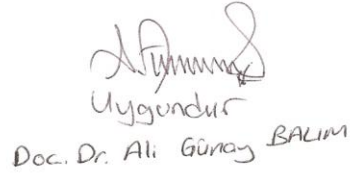 Uygundur
Doc. Dr. Ali Günay BALIM